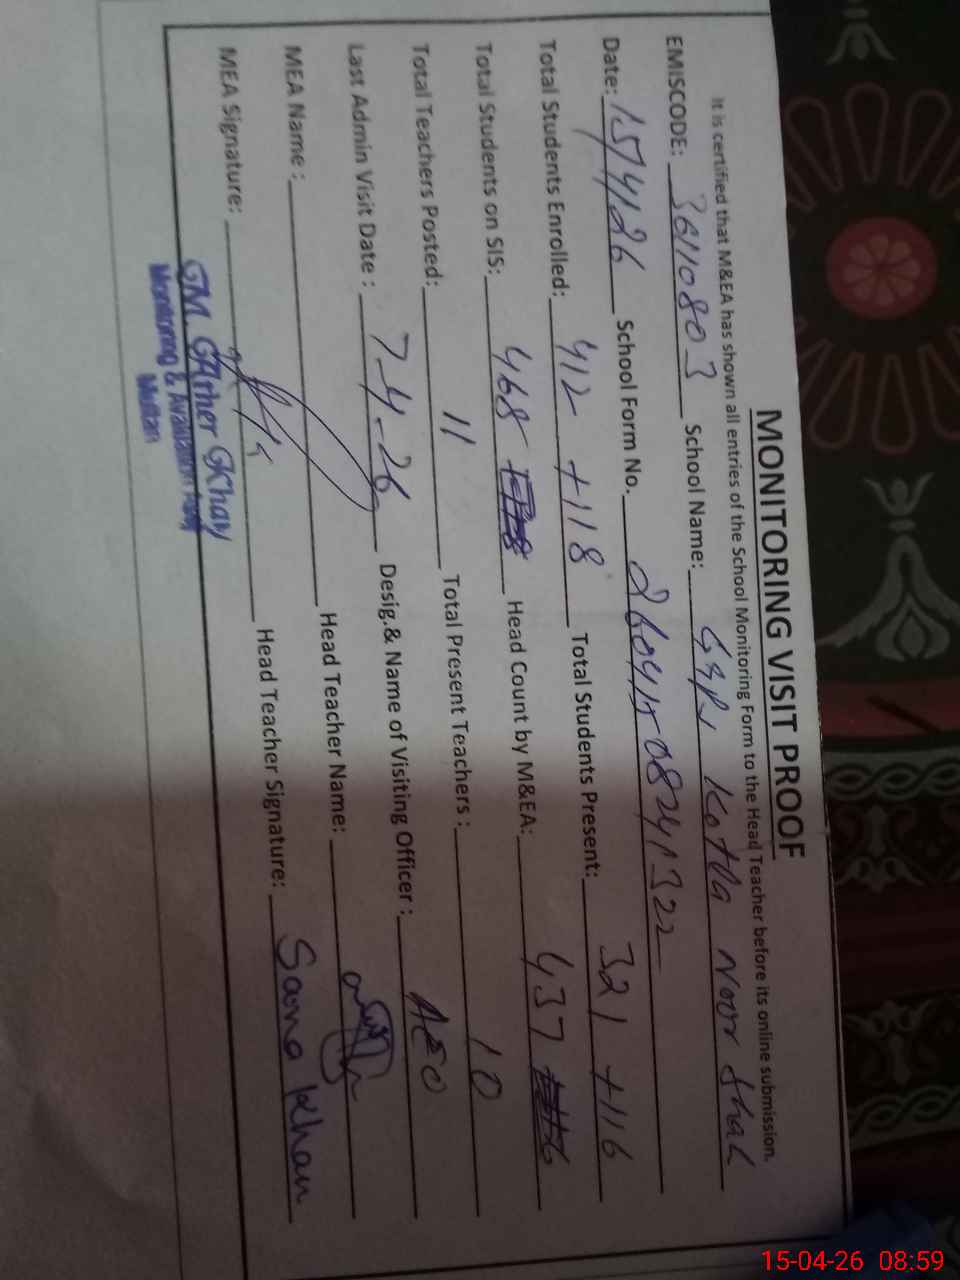 MONITORING VISIT PROOF
It is certified that M&EA has shown all entries of the School Monitoring Form to the Head Teacher before its online submission.
EMISCODE: 36110803 School Name: Kotla Noor Shah
Date: 15/4/26 School Form No.
Total Students Enrolled: 412 +118 Total Students Present: 321 +116
Total Students on SIS: 468 Head Count by M&EA: 437
Total Teachers Posted: 11 Total Present Teachers: 10
Last Admin Visit Date: 7-4-26 Desig.& Name of Visiting Officer: AEO
MEA Name: Head Teacher Name:
MEA Signature: Head Teacher Signature: Sana Khan
Monitoring &
Multan
15-04-26 08:59